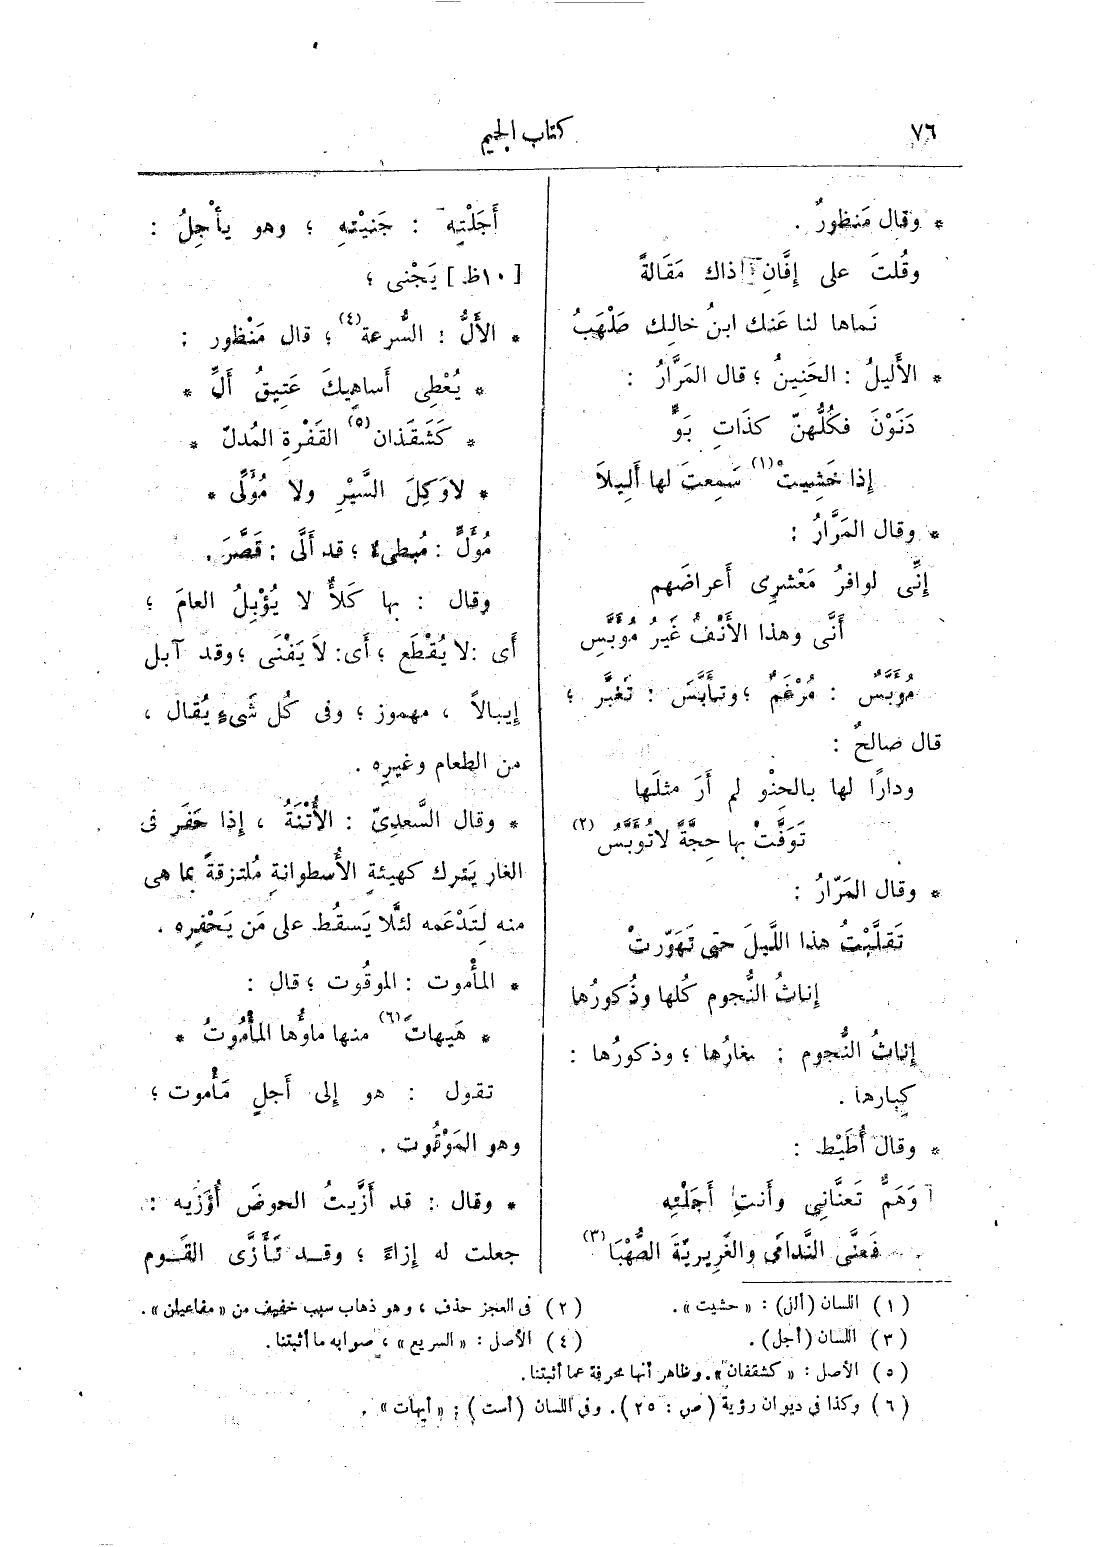 ٧٦
كتاب الجيم
* وقال مَنظورٌ .
وقُلتَ على إفَّانِ ذاك مَقَالةً
نَماها لنا عَنك ابنُ خالِك صَلْهَبُ
* الأَلِيلُ : الحَنِينُ ؛ قال المَرَّارُ :
دَنَوْنَ فكُلُّهنّ كذَاتِ بَوٍّ
إذا خَشِيتْ(١) سَمِعتَ لها أَلِيلاَ
* وقال المَرَّارُ :
إنِّى لوافرُ مَعْشرِى أَعراضَهم
أَنَّى وهذا الأَنْفُ غَيرُ مُؤَبَّسِ
مُؤَبَّسٌ : مُرْغَمٌ ؛ وتأَبَّسَ : تَغيَّر ؛
قال صالحٌ :
ودارًا لها بالحِنْو لم أَرَ مثلَها
تَوَفَّتْ بها حِجَّةً لاتُؤَبَّسُ (٢)
* وقال المَرّارُ :
تَقلَّبْتُ هذا اللَّيلَ حتى تَهَوّرتْ
إناثُ النُّجوم كُلها وذُكورُها
إناثُ النُّجوم : صِغارُها ؛ وذكورُها :
كِبارها .
* وقال أُطَيْط :
وَهَمٌّ تَعنَّانِي وأَنتِ أَجَلْتِه
فَعنَّى النَّدامَى والغَرِيريّةَ الصُّهْبَا(٣)
أَجَلْتِه : جَنيْتهِ ؛ وهو يأْجِلُ :
[ ١٠ظ ] يَجْنى ؛
* الأَلُّ : السُّرعة(٤) ؛ قال مَنْظور :
* يُعْطِى أَساهِيكَ عَتِيقُ أَلِّ *
* كَشَقذان(٥) القَفْرةِ المُدلّ *
* لاوَكِلَ السَّيْرِ ولا مُؤَلِّى *
مُؤَلٍّ : مُبطىء ؛ قد أَلَّى : قَصَّرَ .
وقال : بها كَلأٌ لا يُؤْبِلُ العامَ ؛
أَى :لا يُقْطَع ؛ أَى: لاَ يَفْنَى ؛ وقد آبل
إيبالاً ، مهموز ؛ وفى كُل شَىءٍ يُقال ،
من الطعام وغيرِه .
* وقال السَّعدِىّ : الأُتْنَةُ ، إذا حَفَر فى
الغار يَترك كهيئةِ الأُسطوانةِ مُلتزقةً بما هى
منه لِتَدْعَمه لئلَّا يَسقُط على مَن يَحْفِره .
* المأْموت : الموقُوت ؛ قال :
* هَيهاتَ(٦) منها ماوُها المأْمُوتُ *
تقول : هو إلى أَجلٍ مَأْموت ؛
وهو المَوْقُوت .
* وقال : قد أَزَّيتُ الحوضَ أُؤَزِّيه :
جعلت له إزاءً ؛ وقد تَأَزَّى القَوم
(١) اللسان (ألل) : « حشيت ».
(٢) فى العجز حذف ، وهو ذهاب سبب خفيف من « مفاعيلن ».
(٣) اللسان (أجل).
(٤) الأصل : « السريع » ، صوابه ما أثبتنا.
(٥) الأصل : « كشقفان ». وظاهر أنها محرفة عما أثبتنا.
(٦) وكذا فى ديوان رؤبة (ص : ٢٥). وفى اللسان (أست) : « أيهات » .